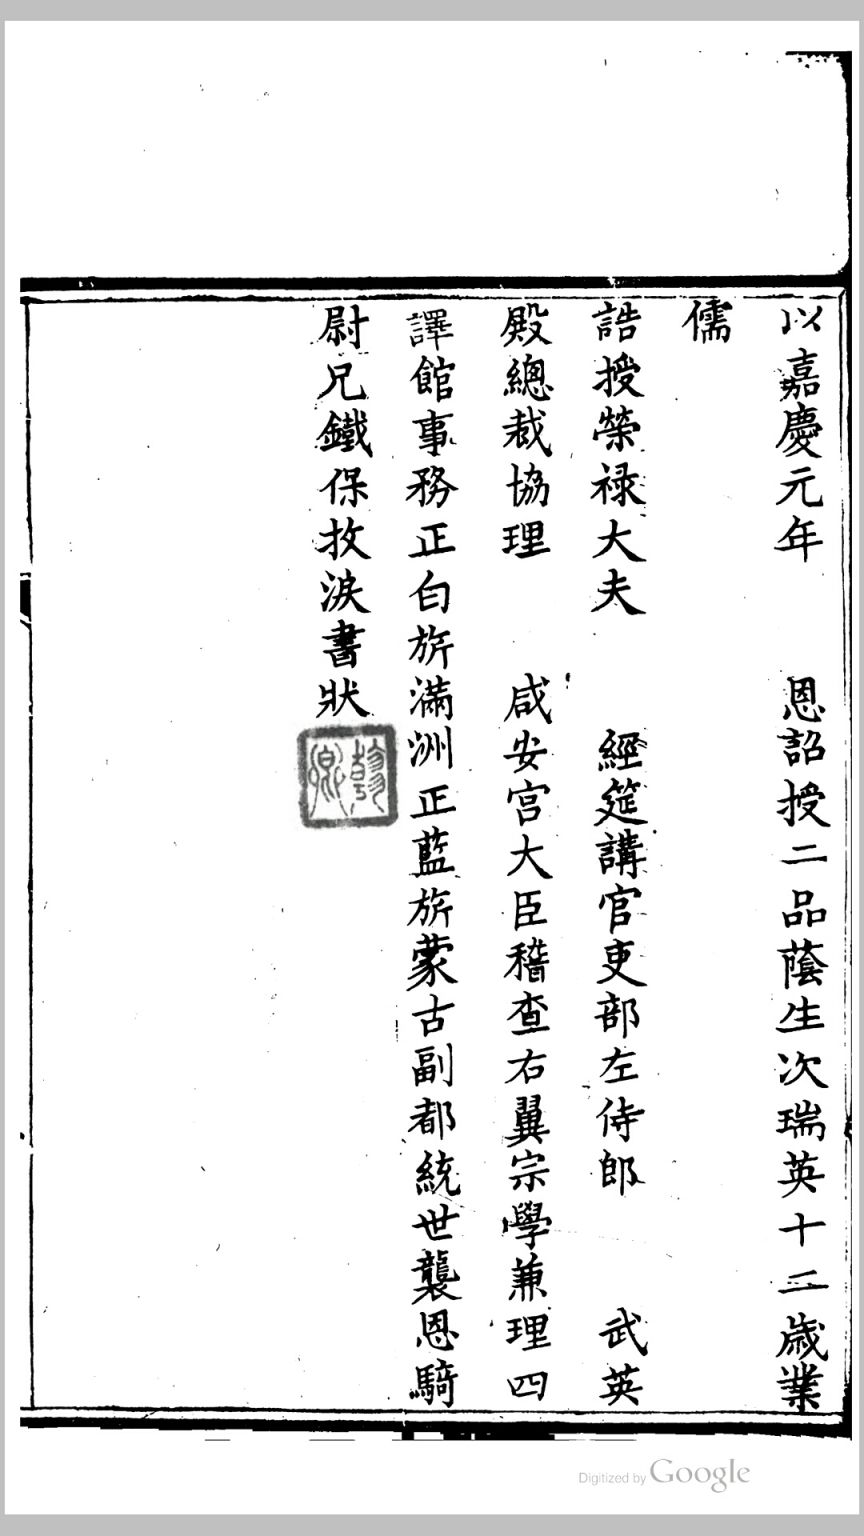 以嘉慶元年　　恩詔授二品蔭生次瑞英十二歲業
儒
誥授榮祿大夫　　經筵講官吏部左侍郎　　武英
殿總裁協理　　咸安宮大臣稽查右翼宗學兼理四
譯館事務正白旂滿洲正藍旂蒙古副都統世襲恩騎
尉兄鐵保抆淚書狀
Digitized by Google